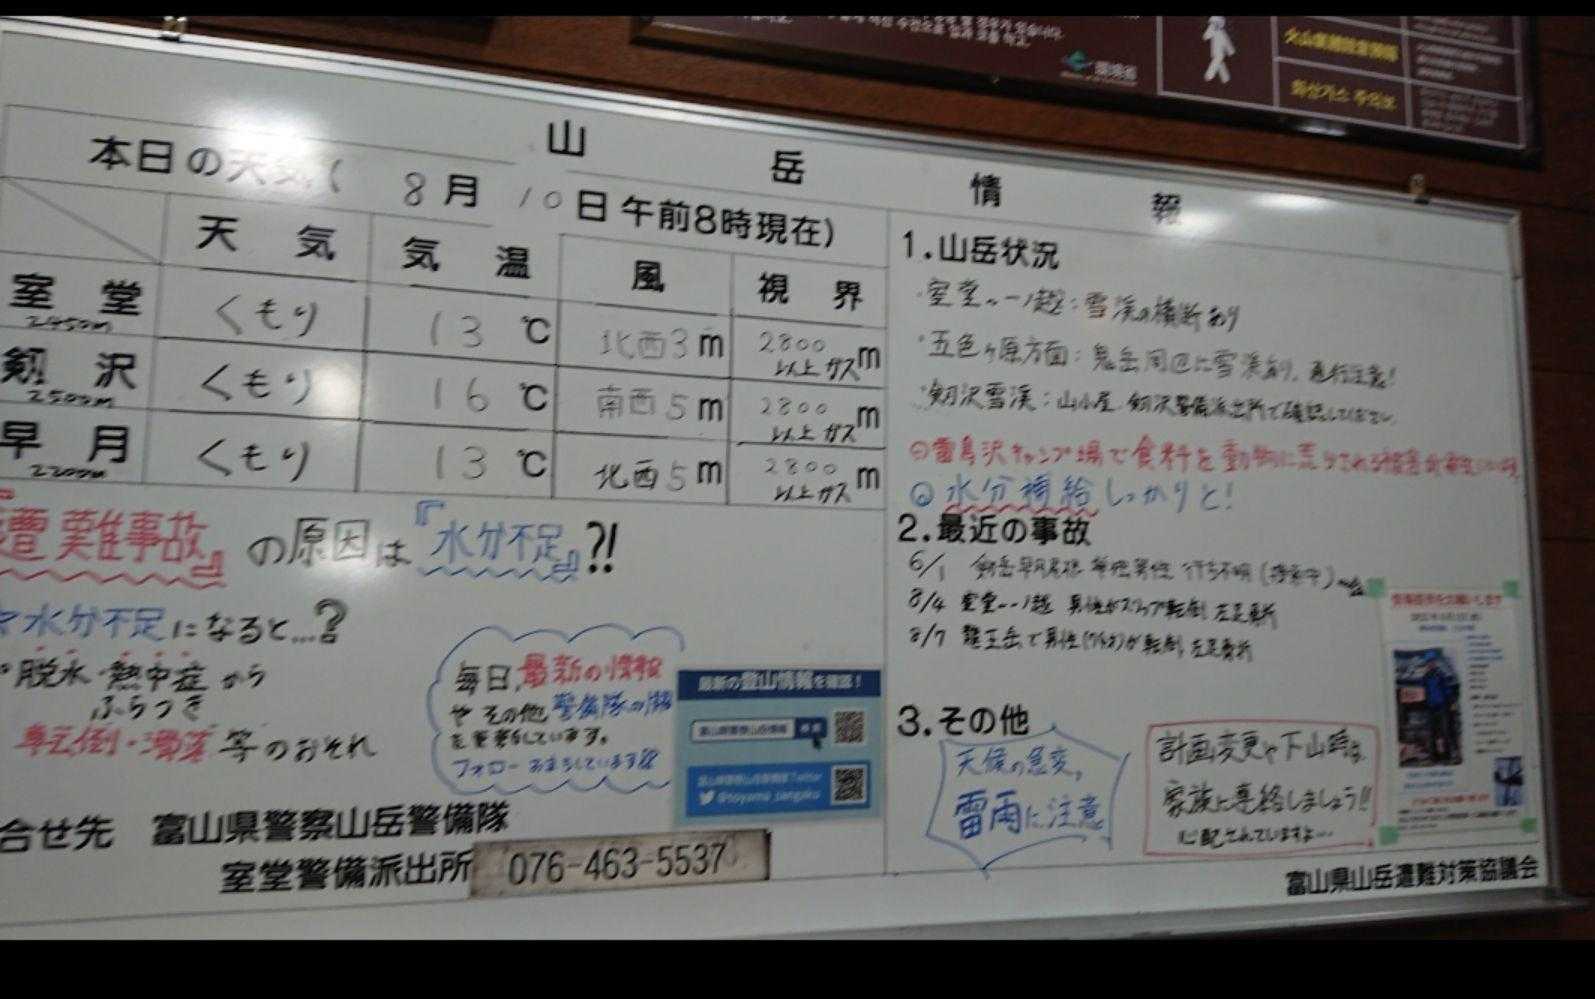 山岳情報
本日の天気( 8月10日午前8時現在)
天気 気温 風 視界
室堂 2450m くもり 13℃ 北西3m 2800以上ガスm
剱沢 2500m くもり 16℃ 南西5m 2800以上ガスm
早月 2200m くもり 13℃ 北西5m 2800以上ガスm
遭難事故』の原因は『水分不足』?!
☆水分不足になると...?
・脱水 熱中症から
ふらつき
転倒・滑落 等のおそれ
毎日、最新の情報
や その他 警備隊の
を更新しています。
フォローお待ちしています
最新の登山情報を確認!
@toyama_sangaku
合せ先 富山県警察山岳警備隊
室堂警備派出所 076-463-5537
1.山岳状況
・室堂~一ノ越:雪渓の横断あり
・五色ヶ原方面:鬼岳周辺に雪渓あり、通行注意!
・剱沢雪渓:山小屋、剱沢警備派出所で確認してください。
◎雷鳥沢キャンプ場で食料を動物に荒らされる被害が
◎水分補給しっかりと!
2.最近の事故
6/1 剱岳早月尾根 単独男性 行方不明(捜索中)
8/4 室堂~一ノ越 男性がスリップ転倒 左足骨折
8/7 龍王岳で男性が転倒 左足骨折
3.その他
天候の急変、
雷雨に注意
計画変更や下山時は、
家族に連絡しましょう!!
心配されていますよ…
富山県山岳遭難対策協議会
화산가스 주의보